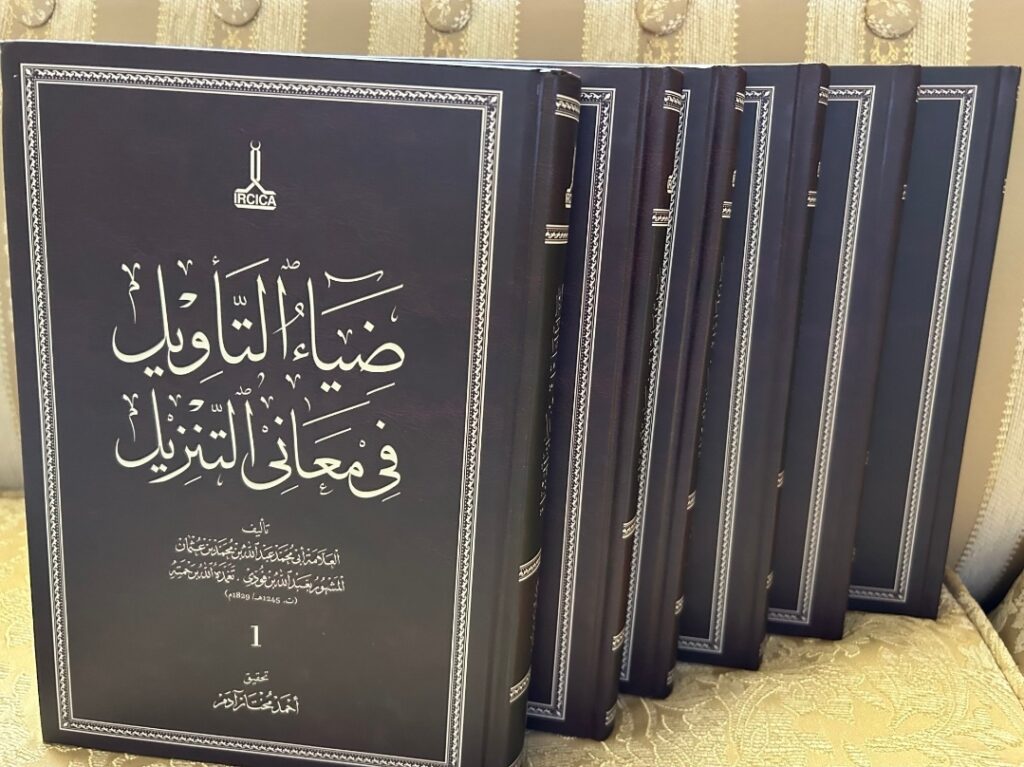 IRCICA
ضِيَاءُ التَّأوِيل
فِي مَعَانِي التَّنزِيل
تأليف
العلامة أبي محمد عبد الله بن محمد بن عثمان
المشهور بعبد الله بن فودي، تغمده الله برحمته
(ت. 1245هـ/ 1829م)
1
تحقيق
أحمد مختار آدم